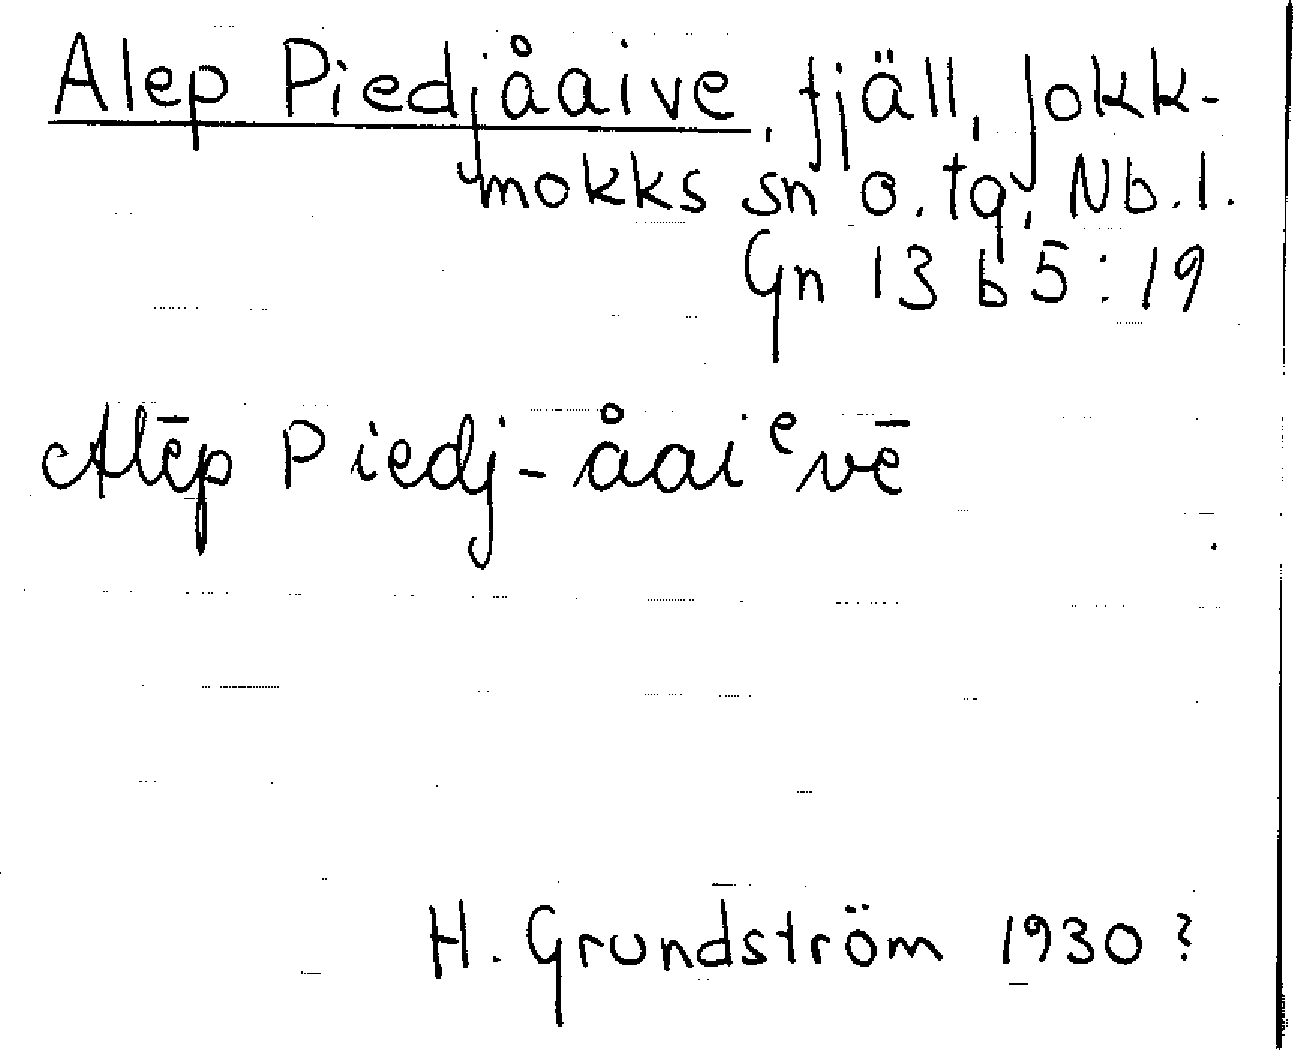 Alep Piedjåaive, fjäll, Jokk-
mokks sn o. tg, Nb. l.
Gn 13 b 5:19
Alēp Piedj-åaiᵉvē
H. Grundström 1930?